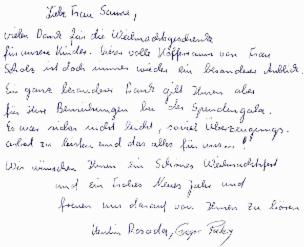 Liebe Frau Sauna,
vielen Dank für die Weihnachtsgeschenke
für unsere Kinder. Dieser volle Kofferraum von Frau
Scholz ist doch immer wieder ein besonderer Anblick.
Ein ganz besonderer Dank gilt Ihnen aber
für Ihre Bemühungen bei der Spendengala.
Es war sicher nicht leicht, soviel Überzeugungs-
arbeit zu leisten und das alles für uns...!
Wir wünschen Ihnen ein Schönes Weihnachtsfest
und ein Frohes Neues Jahr und
freuen uns darauf von Ihnen zu hören